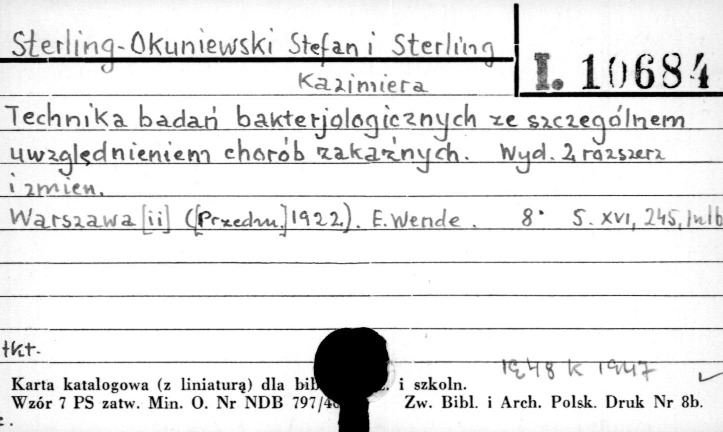 Sterling-Okuniewski Stefan i Sterling
Kazimiera
I. 10684
Technika badań bakterjologicznych ze szczególnem
uwzględnieniem chorób zakaźnych. Wyd. 2, rozszerz
i zmien.
Warszawa [ii] ([Przedm.] 1922). E. Wende. 8° S. XVI, 245, 1 nlb
tkt.
1948 K 1947
Karta katalogowa (z liniaturą) dla bib i szkoln.
Wzór 7 PS zatw. Min. O. Nr NDB 797/4 Zw. Bibl. i Arch. Polsk. Druk Nr 8b.